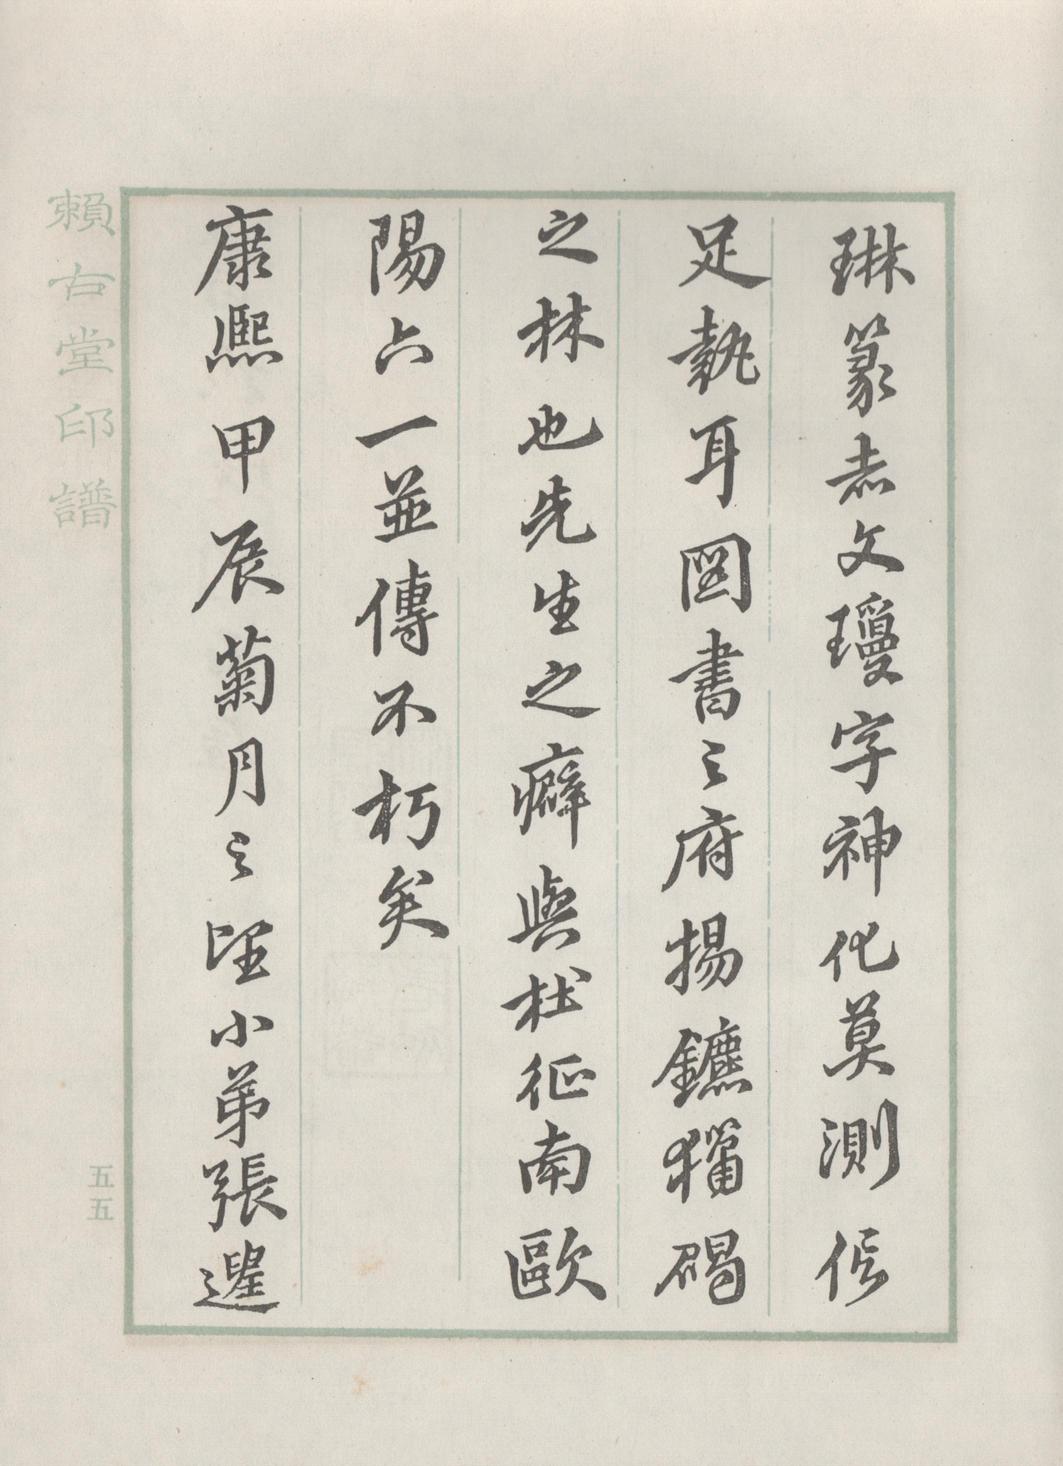 琳篆赤文瓊字神化莫測信
足執耳圖書之府揚鑣獵碣
之林也先生之癖與杜征南歐
陽六一並傳不朽矣
康熙甲辰菊月之望小弟張遲
賴古堂印譜
五五